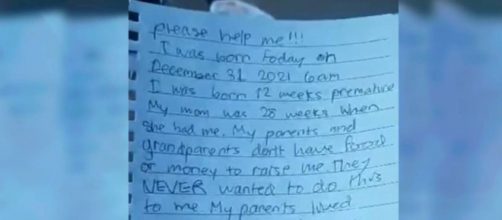 please help me!!!
I was born today on
December 31 2021 6am
I was born 12 weeks premature
My mom was 28 weeks when
she had me. My parents and
grandparents dont have food
or money to raise me They
NEVER wanted to do thus
to me My parents loved